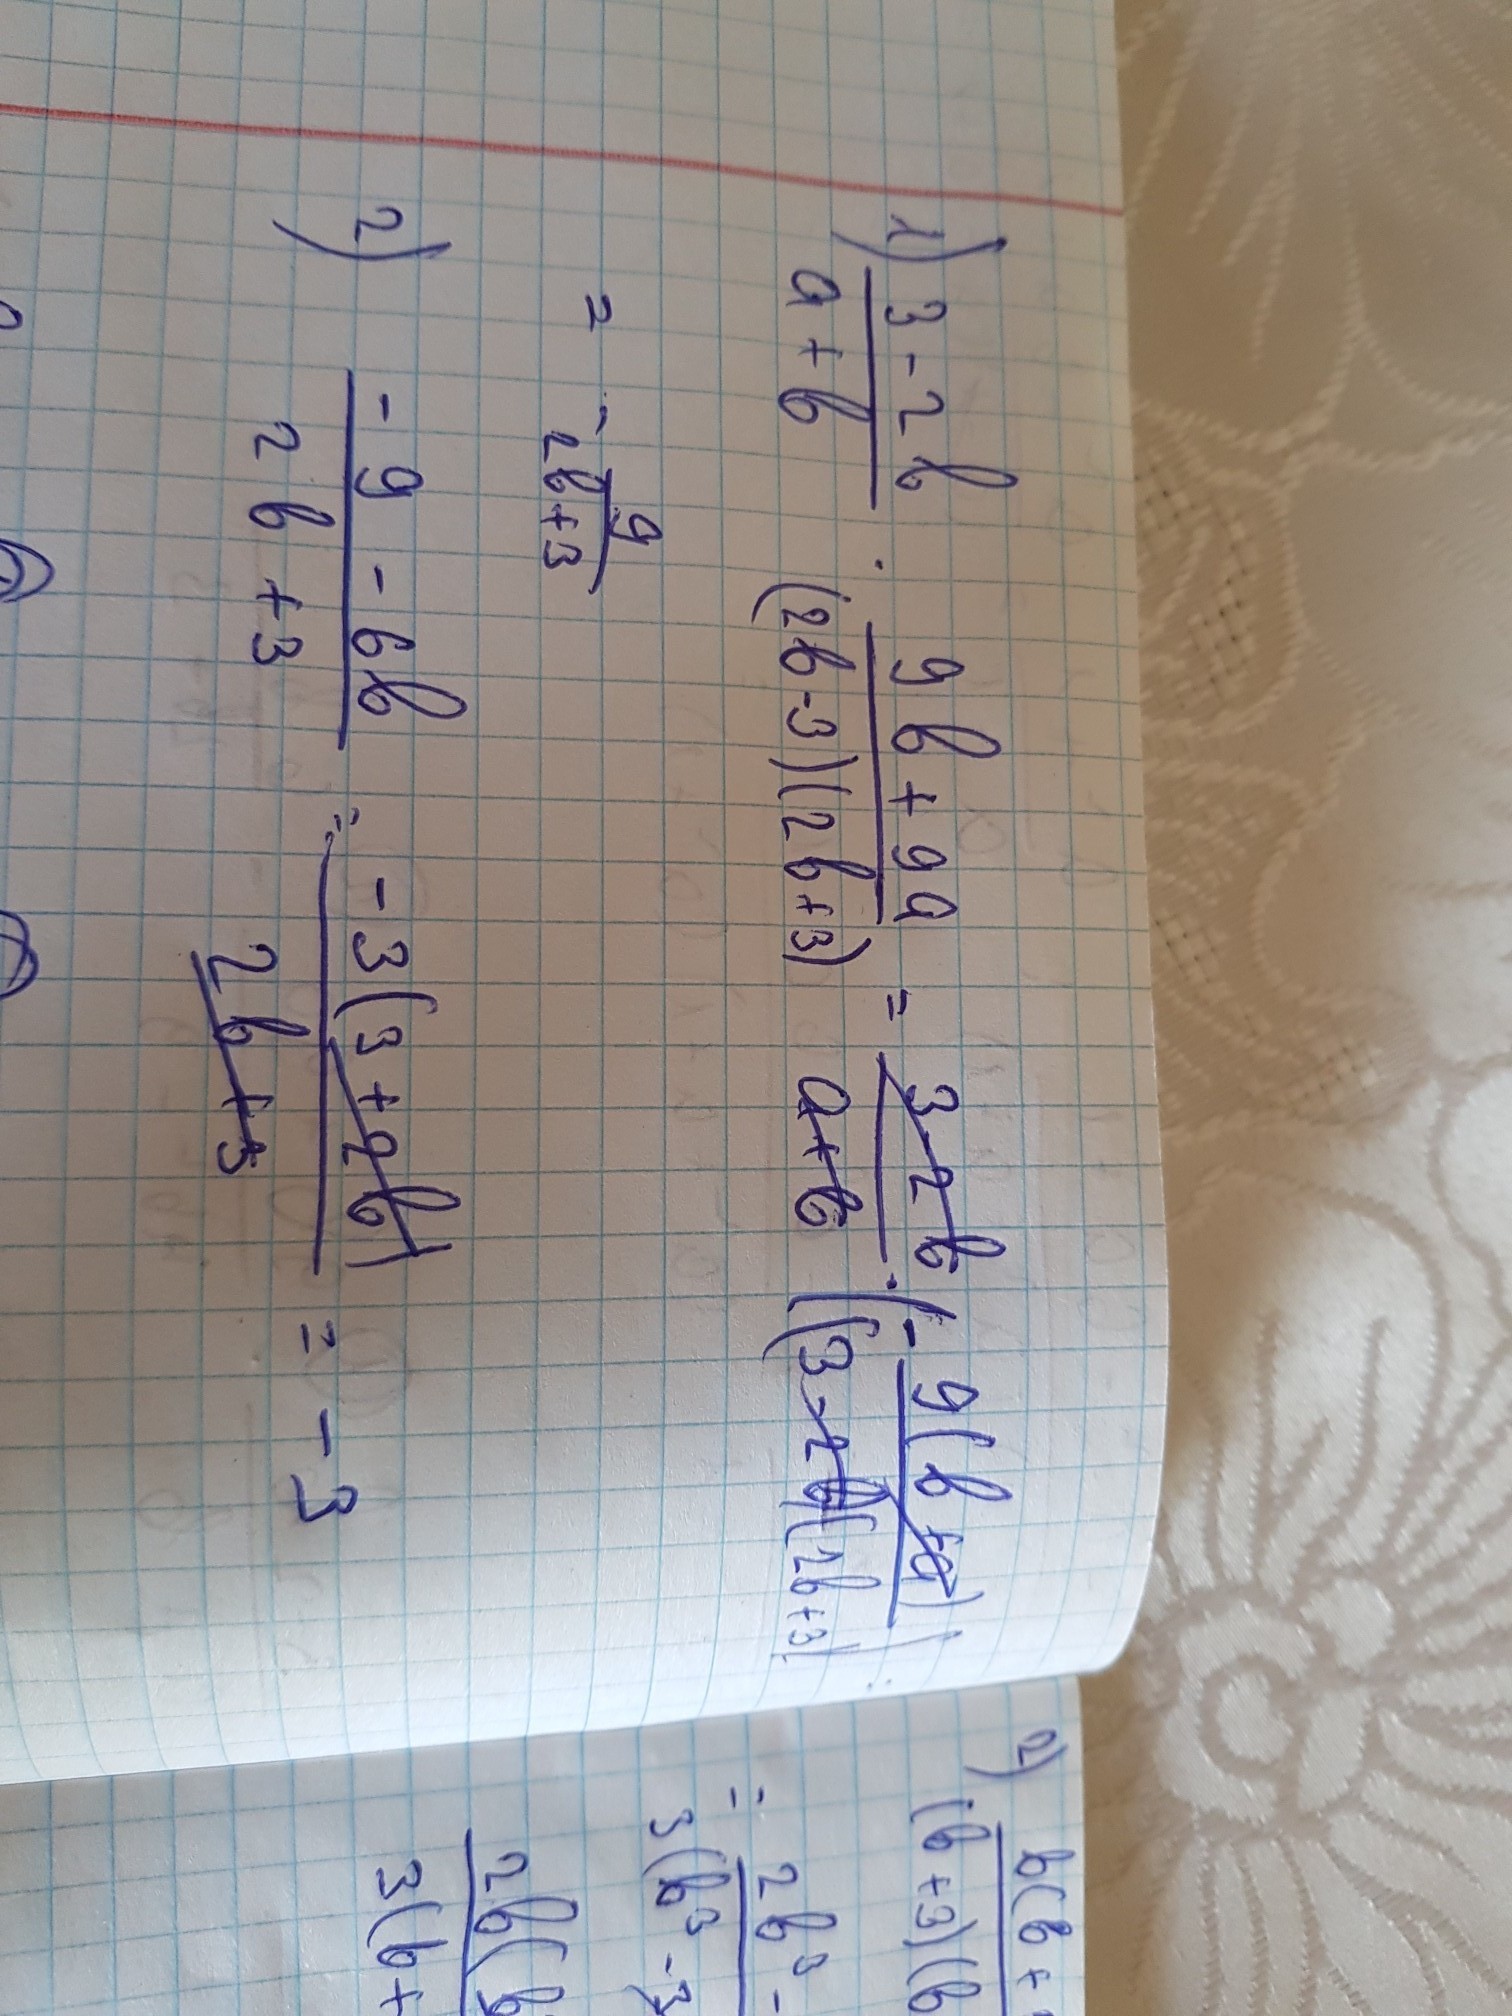 1) (3 - 2b)/(a + b) · (9b + 9a)/((2b - 3)(2b + 3)) = (3 - 2b)/(a + b) · (- (9(b + a))/((3 - 2b)(2b + 3))) =
= - 9/(2b + 3)
2) (- 9 - 6b)/(2b + 3) = (- 3(3 + 2b))/(2b + 3) = - 3
2) b(b +
(b + 3)(b
= 2b³ -
3(b³ - 3
2b(
3(b +